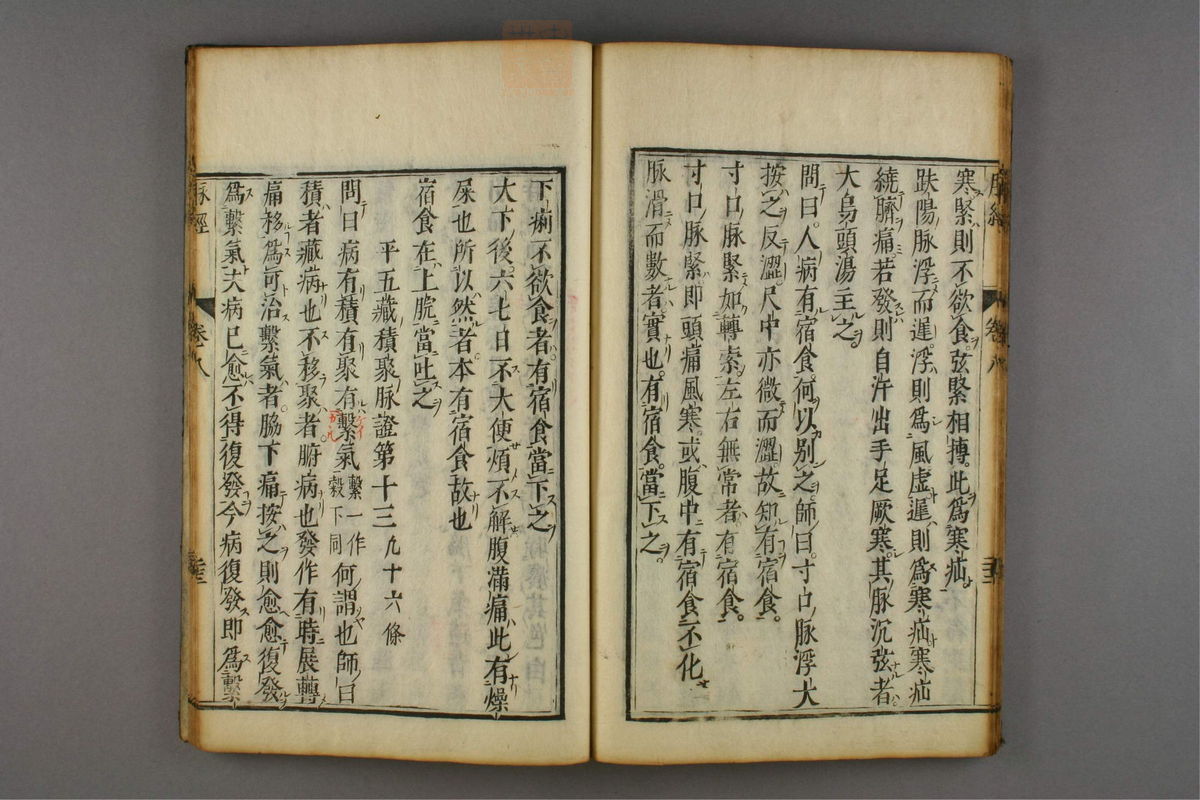 寒緊則不欲食弦緊相搏此爲寒疝
趺陽脉浮而遲浮則爲風虛遲則爲寒疝寒疝
繞臍痛若發則自汗出手足厥寒其脉沉弦者
大烏頭湯主之
問曰人病有宿食何以别之師曰寸口脉浮大
按之反澀尺中亦微而澀故知有宿食
寸口脉緊如轉索左右無常者有宿食
寸口脉緊即頭痛風寒或腹中有宿食不化
脉滑而數者實也有宿食當下之
卷八
脉經
卷八
下痢不欲食者有宿食當下之
大下後六七日不大便煩不解腹滿痛此有燥
屎也所以然者本有宿食故也
宿食在上脘當吐之
平五藏積聚脉證第十三九十六條
問曰病有積有聚有繫氣繫一作穀下同何謂也師曰
積者藏病也不移聚者腑病也發作有時展轉
痛移爲可治繫氣者脇下痛按之則愈愈復發
爲繫氣夫病已愈不得復發今病復發即爲繫